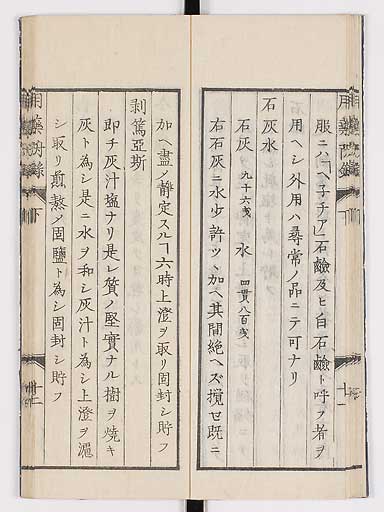 服ニハ「ヘ子チア」石鹼及ヒ白石鹼ト呼フ者ヲ
用ヘシ外用ハ尋常ノ品ニテ可ナリ
石灰水
石灰 九十六戔 水 四貫八百戔
右石灰ニ水少許ツヽ加ヘ其間絶ヘズ攪セ既ニ
加ヘ盡ノ静定スルヿ六時上澄ヲ取リ固封シ貯フ
剥篤亞斯
即チ灰汁塩ナリ是レ質ノ堅實ナル樹ヲ焼キ
灰ト為シ是ニ水ヲ和シ灰汁ト為シ上澄ヲ漉
シ取リ煎熬ノ固鹽ト為シ固封シ貯フ